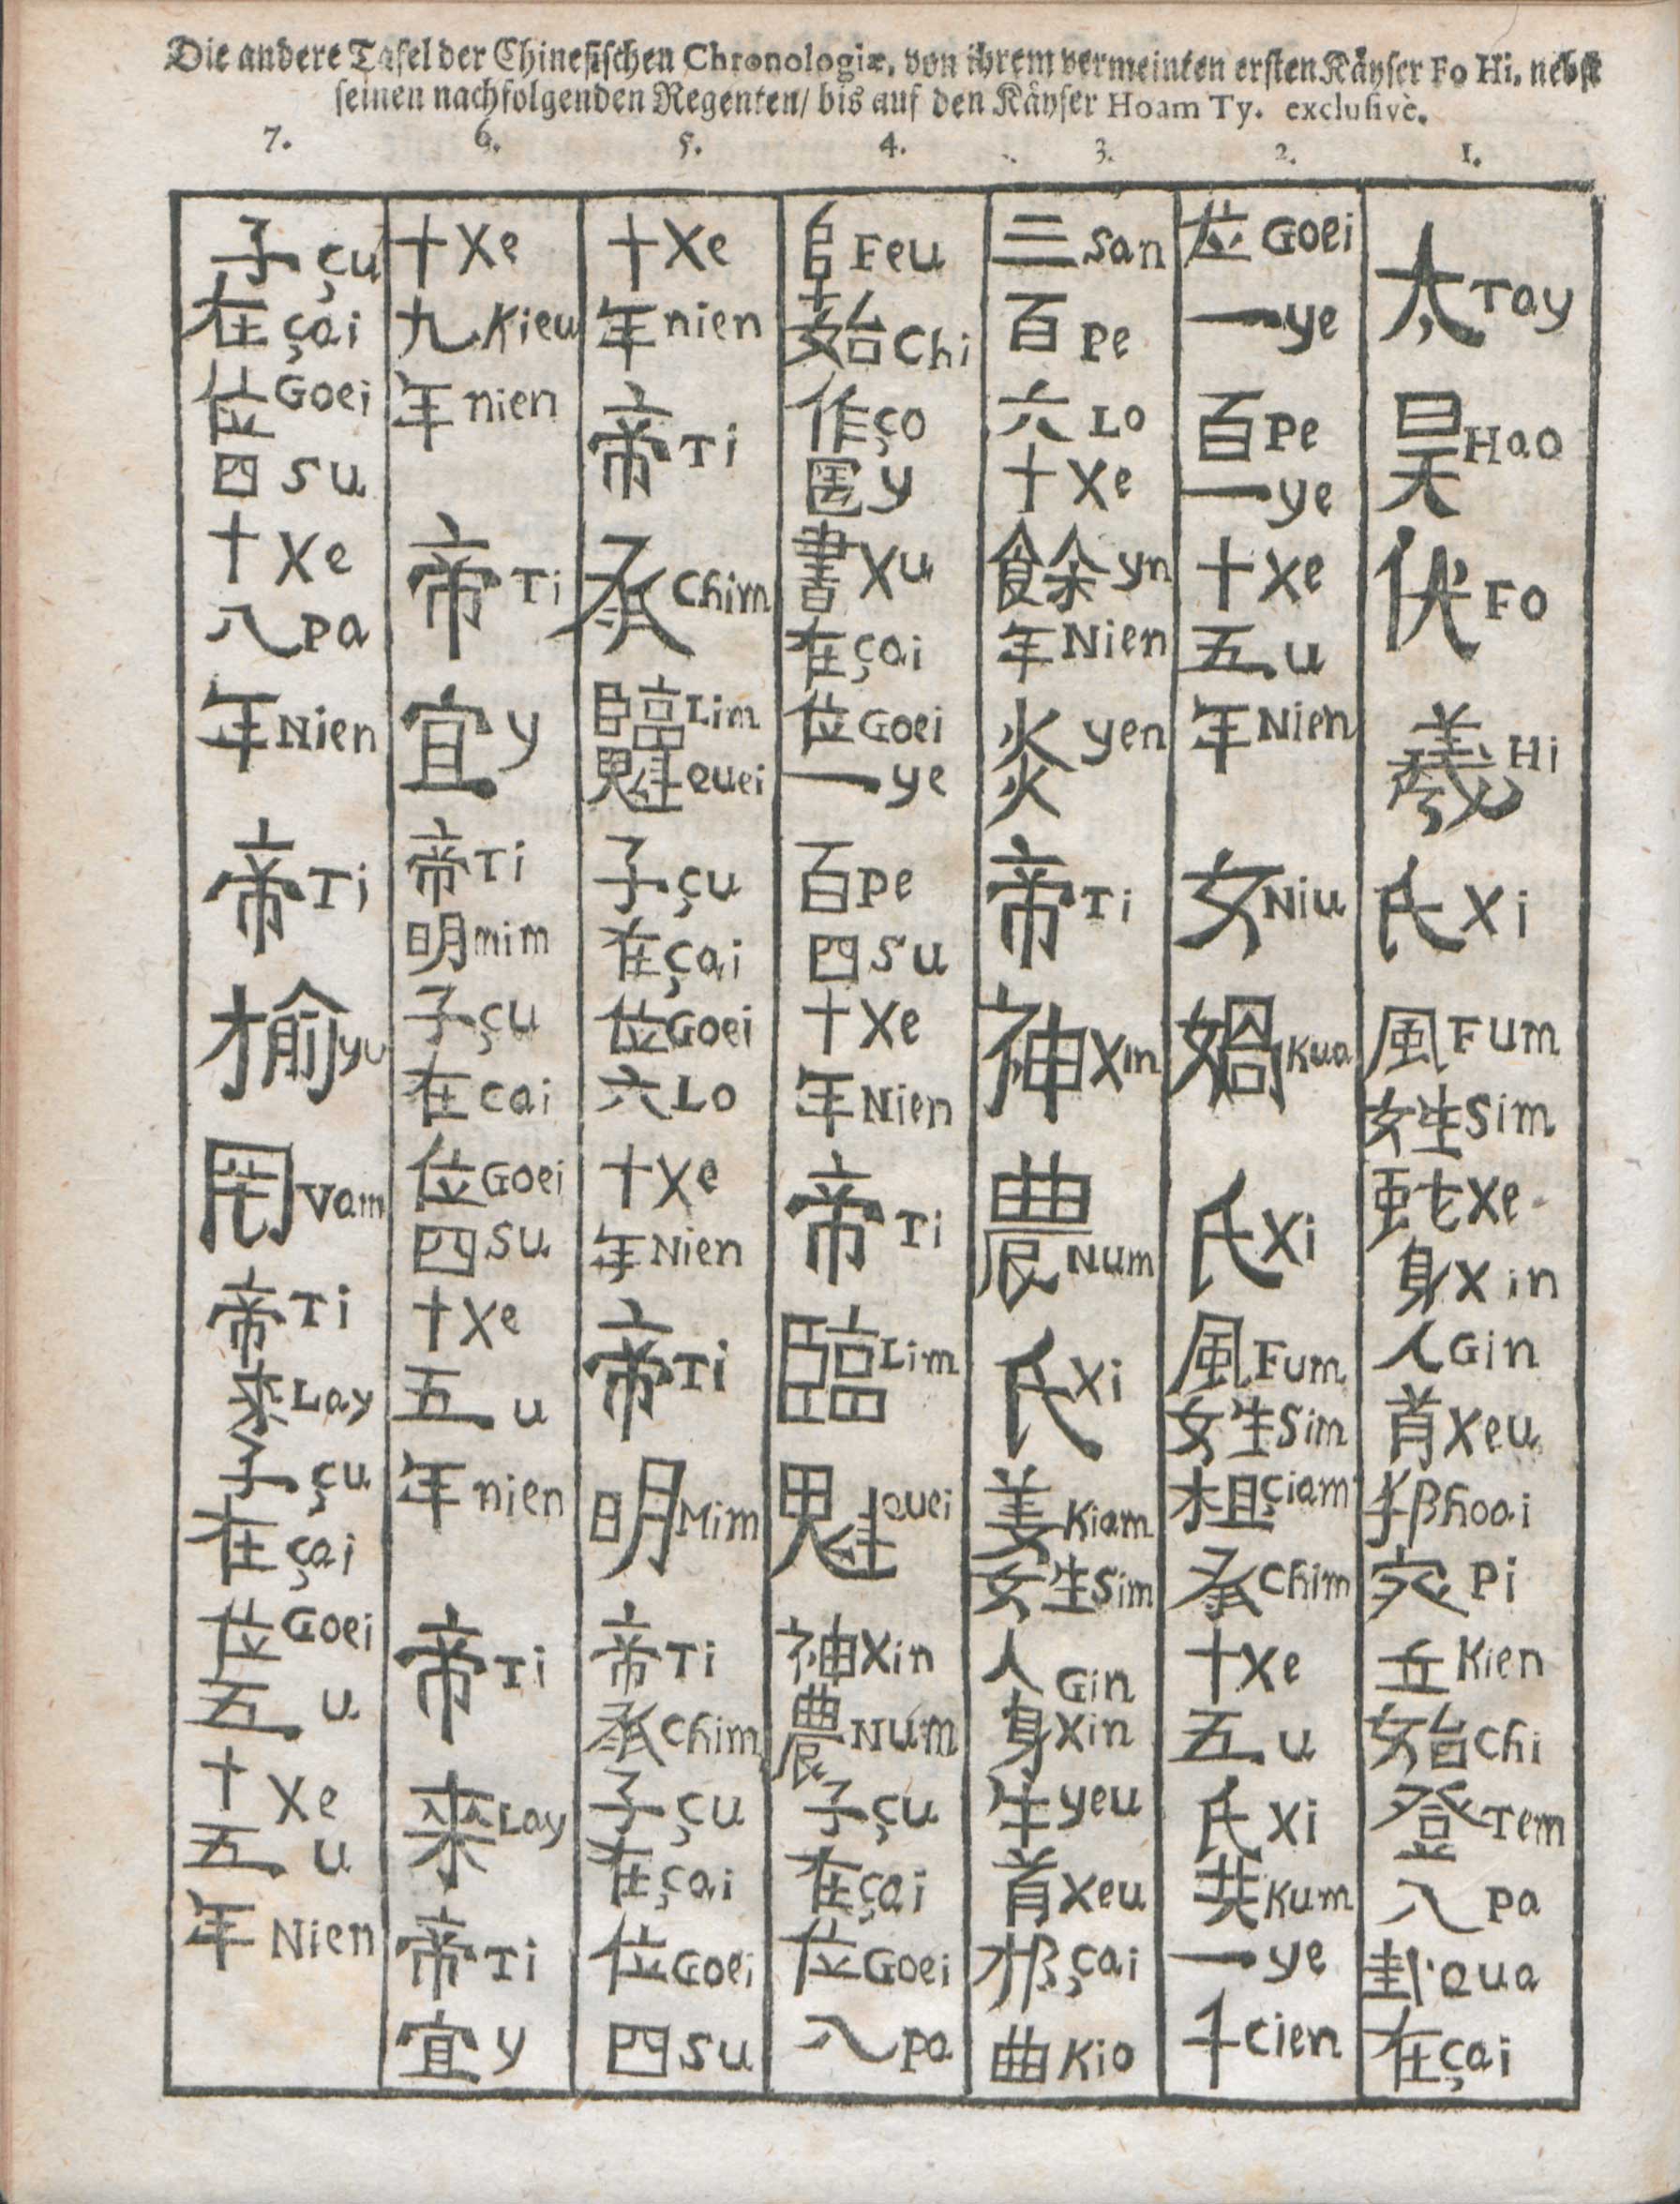 Die andere Tafel der Chinesischen Chronologiæ, von ihrem vermeinten ersten Käyser Fo Hi. nebst
seinen nachfolgenden Regenten/ bis auf den Käyser Hoam Ty. exclusivè.
7. 6. 5. 4. 3. 2. 1.
太 Tay 昊 Hao 伏 Fo 羲 Hi 氏 Xi 風 Fum 姓 Sim 蛇 Xe 身 Xin 人 Gin 首 Xeu hoai Pi 丘 Kien 始 Chi 登 Tem 八 Pa 卦 Qua 在 çai
位 Goei 一 ye 百 Pe 一 ye 十 Xe 五 u 年 Nien 女 Niu 媧 Kua 氏 Xi 風 Fum 姓 Sim 相 çiam 承 Chim 十 Xe 五 u 氏 Xi 共 Kum 一 ye 千 Cien
三 San 百 Pe 六 Lo 十 Xe 餘 yn 年 Nien 炎 yen 帝 Ti 神 Xin 農 Num 氏 Xi 姜 Kiam 姓 Sim 人 Gin 身 Xin 牛 yeu 首 Xeu çai 曲 Kio
阜 Feu 始 Chi 作 ço y 書 Xu 在 çai 位 Goei 一 ye 百 Pe 四 Su 十 Xe 年 Nien 帝 Ti 臨 Lim 魁 Quei 神 Xin 農 Num 子 çu 在 çai 位 Goei 八 Pa
十 Xe 年 nien 帝 Ti 承 Chim 臨 Lim 魁 Quei 子 çu 在 çai 位 Goei 六 Lo 十 Xe 年 Nien 帝 Ti 明 Mim 帝 Ti 承 Chim 子 çu 在 çai 位 Goei 四 Su
十 Xe 九 Kieu 年 nien 帝 Ti 宜 y 帝 Ti 明 mim 子 çu 在 cai 位 Goei 四 Su 十 Xe 五 u 年 nien 帝 Ti 来 Lay 帝 Ti 宜 y
子 çu 在 çai 位 Goei 四 Su 十 Xe 八 Pa 年 Nien 帝 Ti 榆 yu 罔 Vam 帝 Ti 来 Lay 子 çu 在 çai 位 Goei 五 u 十 Xe 五 u 年 Nien